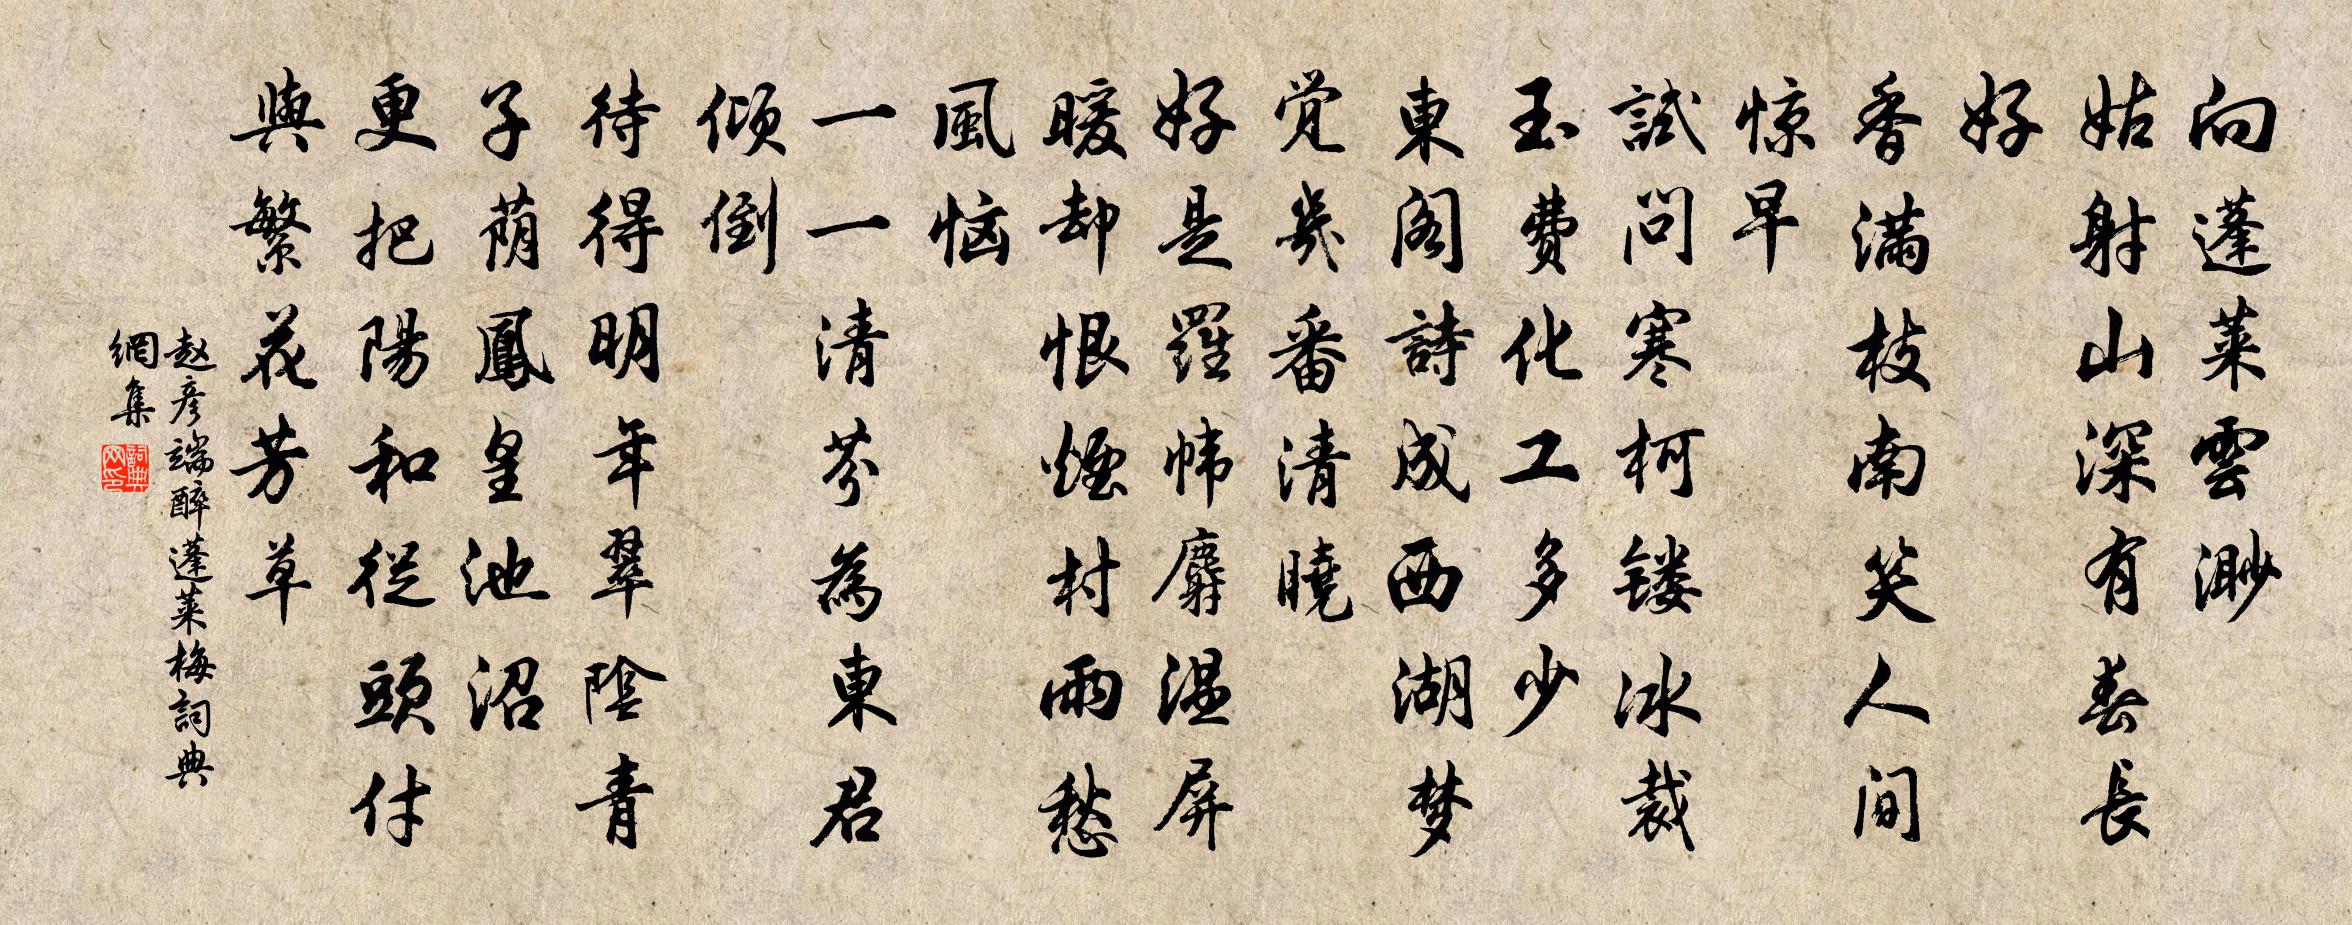 向蓬莱雲渺
姑射山深有春長
好
香滿枝南笑人间
惊早
試问寒柯镂冰裁
玉費化工多少
東阁詩成西湖梦
觉幾番清曉
好是羅帏麝温屏
暖却恨煙村雨愁
風恼
一一清芬為東君
倾倒
待得明年翠陰青
子荫鳳皇池沼
更把陽和從頭付
與繁花芳草
赵彦端醉蓬莱梅詞典
網集
詞典网印